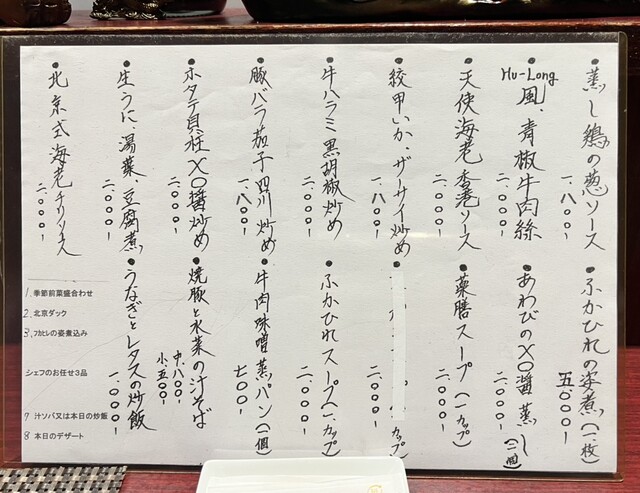 •蒸し鶏の葱ソース 一.八〇〇-
•Hu-Long風、青椒牛肉絲 二.〇〇〇-
•天使海老香港ソース 二.〇〇〇-
•紋甲いか、ザーサイ炒め 一.八〇〇-
•牛ハラミ黒胡椒炒め 二.〇〇〇-
•豚バラ茄子四川炒め 一.八〇〇-
•ホタテ貝柱XO醤炒め 二.〇〇〇-
•生うに、湯葉、豆腐煮 二.〇〇〇-
•北京式海老チリソース 二.〇〇〇-
•ふかひれの姿煮(一枚) 五.〇〇〇-
•あわびのXO醤蒸し(一個) 二.〇〇〇-
•薬膳スープ(一カップ) 二.〇〇〇-
カップ) 二.〇〇〇-
•ふかひれスープ(一カップ) 二.〇〇〇-
•牛肉味噌蒸パン(一個) 七〇〇-
•焼豚と水菜の汁そば 中.八〇〇- 小.五〇〇-
•うなぎとレタスの炒飯 一.〇〇〇-
1.季節前菜盛合わせ
2.北京ダック
3.フカヒレの姿煮込み
シェフのお任せ3品
7 汁ソバ又は本日の炒飯
8 本日のデザート